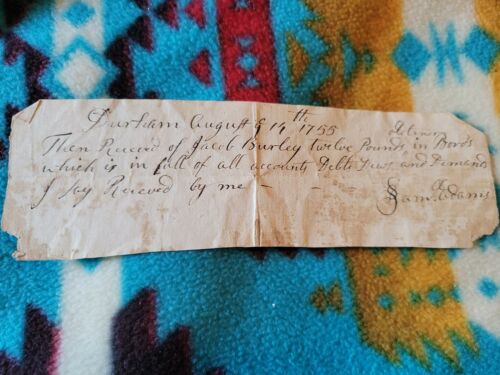 Durham August y 14th 1755
Then Receved of Jacob Burley twelve Pounds in Bords
which is in full of all accounts Debts Dues and Demands
I say Receved by me - - Sam. Adams